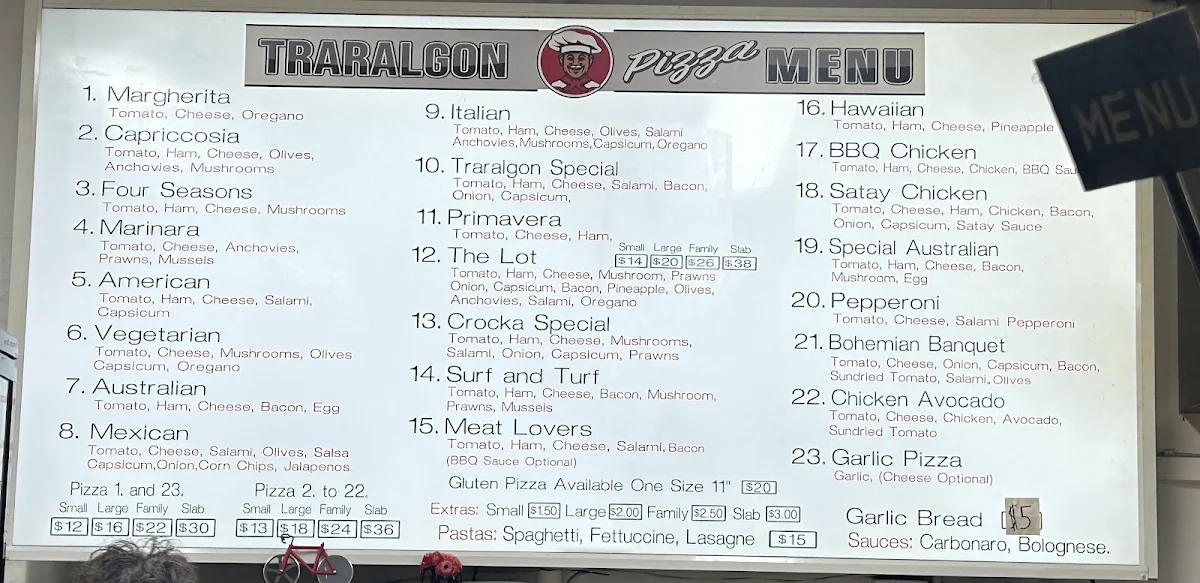 TRARALGON Pizza MENU
1. Margherita
Tomato, Cheese, Oregano
2. Capriccosia
Tomato, Ham, Cheese, Olives,
Anchovies, Mushrooms
3. Four Seasons
Tomato, Ham, Cheese, Mushrooms
4. Marinara
Tomato, Cheese, Anchovies,
Prawns, Mussels
5. American
Tomato, Ham, Cheese, Salami,
Capsicum
6. Vegetarian
Tomato, Cheese, Mushrooms, Olives
Capsicum, Oregano
7. Australian
Tomato, Ham, Cheese, Bacon, Egg
8. Mexican
Tomato, Cheese, Salami, Olives, Salsa
Capsicum,Onion,Corn Chips, Jalapenos
Pizza 1. and 23.
Small Large Family Slab
$12 $16 $22 $30
Pizza 2. to 22.
Small Large Family Slab
$13 $18 $24 $36
9. Italian
Tomato, Ham, Cheese, Olives, Salami
Anchovies,Mushrooms,Capsicum,Oregano
10. Traralgon Special
Tomato, Ham, Cheese, Salami, Bacon,
Onion, Capsicum,
11. Primavera
Tomato, Cheese, Ham,
12. The Lot
Small Large Family Slab
$14 $20 $26 $38
Tomato, Ham, Cheese, Mushroom, Prawns
Onion, Capsicum, Bacon, Pineapple, Olives,
Anchovies, Salami, Oregano
13. Crocka Special
Tomato, Ham, Cheese, Mushrooms,
Salami, Onion, Capsicum, Prawns
14. Surf and Turf
Tomato, Ham, Cheese, Bacon, Mushroom,
Prawns, Mussels
15. Meat Lovers
Tomato, Ham, Cheese, Salami, Bacon
(BBQ Sauce Optional)
Gluten Pizza Available One Size 11" $20
Extras: Small $1.50 Large $2.00 Family $2.50 Slab $3.00
Pastas: Spaghetti, Fettuccine, Lasagne $15
16. Hawaiian
Tomato, Ham, Cheese, Pineapple
17. BBQ Chicken
Tomato, Ham, Cheese, Chicken, BBQ Sau
18. Satay Chicken
Tomato, Cheese, Ham, Chicken, Bacon,
Onion, Capsicum, Satay Sauce
19. Special Australian
Tomato, Ham, Cheese, Bacon,
Mushroom, Egg
20. Pepperoni
Tomato, Cheese, Salami Pepperoni
21. Bohemian Banquet
Tomato, Cheese, Onion, Capsicum, Bacon,
Sundried Tomato, Salami, Olives
22. Chicken Avocado
Tomato, Cheese, Chicken, Avocado,
Sundried Tomato
23. Garlic Pizza
Garlic, (Cheese Optional)
Garlic Bread $5
Sauces: Carbonaro, Bolognese.
MENU